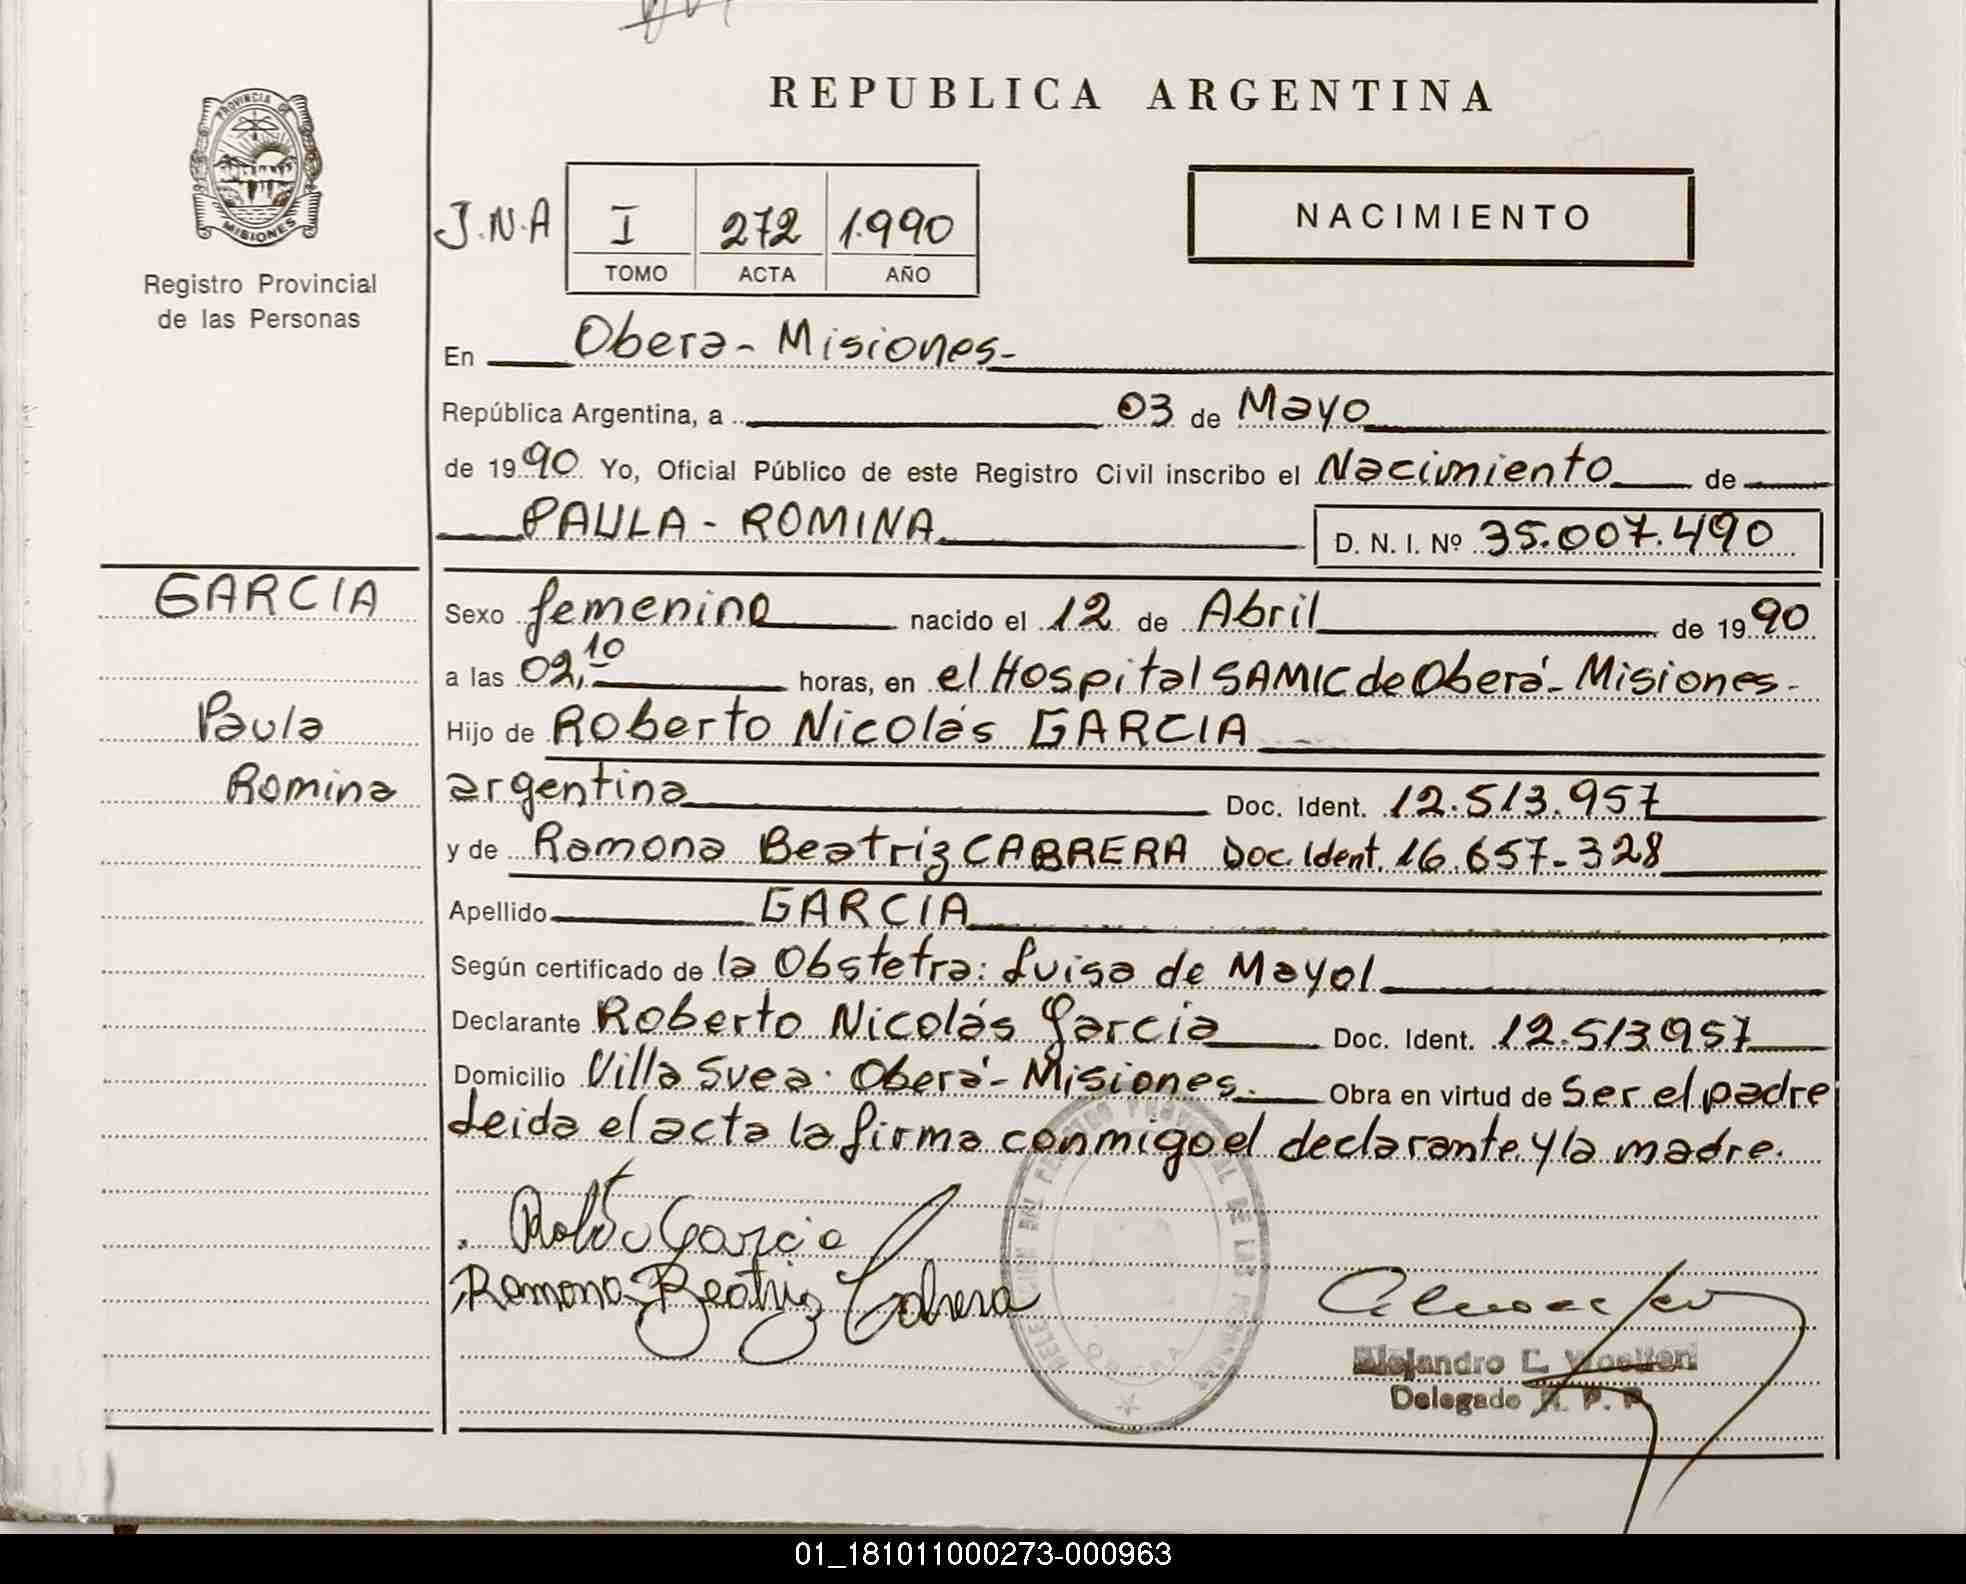 REPUBLICA ARGENTINA
PROVINCIA DE
MISIONES
Registro Provincial
de las Personas
J.N.A I 272 1.990
TOMO ACTA AÑO
NACIMIENTO
En Obera - Misiones -
República Argentina, a 03 de Mayo
de 1990 Yo, Oficial Público de este Registro Civil inscribo el Nacimiento de
PAULA - ROMINA D. N. I. Nº 35.007.490
GARCIA
Paula
Romina
Sexo femenino nacido el 12 de Abril de 1990
a las 02,10 horas, en el Hospital SAMIC de Oberá - Misiones -
Hijo de Roberto Nicolás GARCIA
argentina Doc. Ident. 12.513.957
y de Ramona Beatriz CABRERA Doc. Ident. 16.657-328
Apellido GARCIA
Según certificado de la Obstetra: Luisa de Mayol
Declarante Roberto Nicolás Garcia Doc. Ident. 12.513957
Domicilio Villa Svea. Oberá - Misiones. Obra en virtud de Ser el padre
Leida el acta la firma conmigo el declarante y la madre.
Garcia
Ramona Beatriz Cabrera
PROVINCIAL DE LAS PERSONAS
OBERA
Alejandro E.
Delegado R. P. P.
01_181011000273-000963